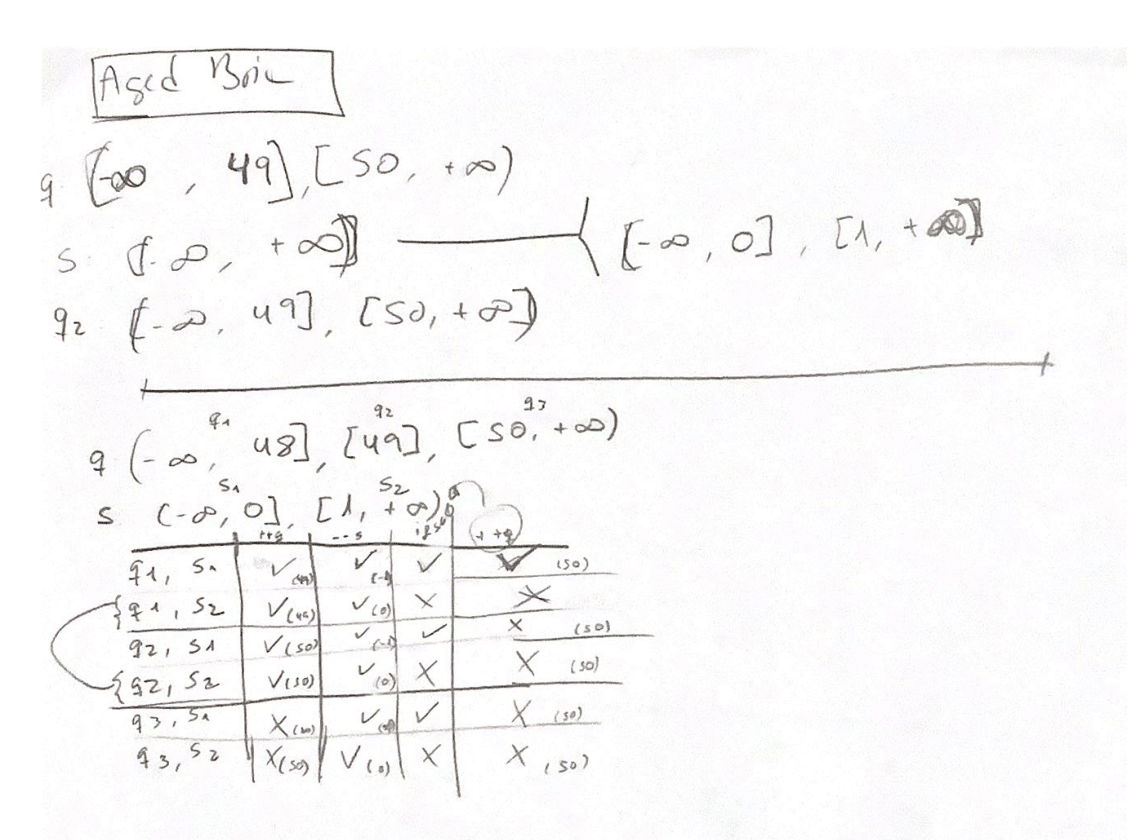 Aged Brie
q (-∞, 49], [50, +∞)
s (-∞, +∞) [-∞, 0], [1, +∞)
q2 (-∞, 49], [50, +∞)
q1 q2 q3
q (-∞, 48], [49], [50, +∞)
s1 s2
s (-∞, 0], [1, +∞)
++q --s if s<0 ++q
q1, s1 ✓(49) ✓(-1) ✓ ✓ (50)
q1, s2 ✓(49) ✓(0) X X
q2, s1 ✓(50) ✓(-1) ✓ X (50)
q2, s2 ✓(50) ✓(0) X X (50)
q3, s1 X(50) ✓ ✓ X (50)
q3, s2 X(50) ✓(0) X X (50)